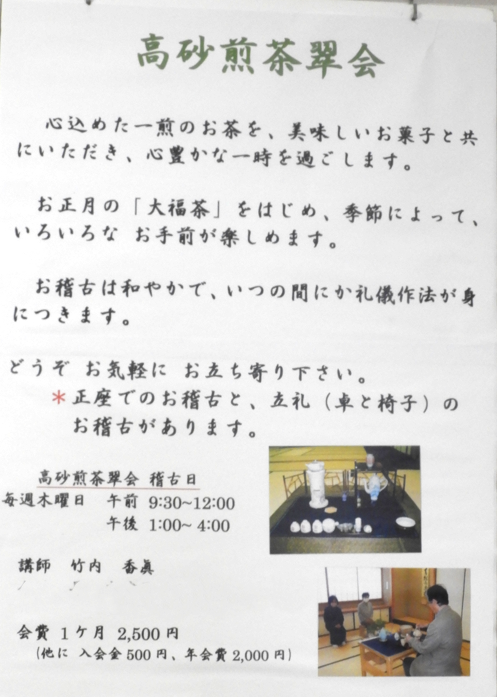 高砂煎茶翠会
心込めた一煎のお茶を、美味しいお菓子と共
にいただき、心豊かな一時を過ごします。
お正月の「大福茶」をはじめ、季節によって、
いろいろな お手前が楽しめます。
お稽古は和やかで、いつの間にか礼儀作法が身
につきます。
どうぞ お気軽に お立ち寄り下さい。
*正座でのお稽古と、立礼(卓と椅子)の
お稽古があります。
高砂煎茶翠会 稽古日
毎週木曜日 午前 9:30~12:00
午後 1:00~ 4:00
講師 竹内 香眞
会費 1ケ月 2,500円
(他に 入会金500円、年会費2,000円)